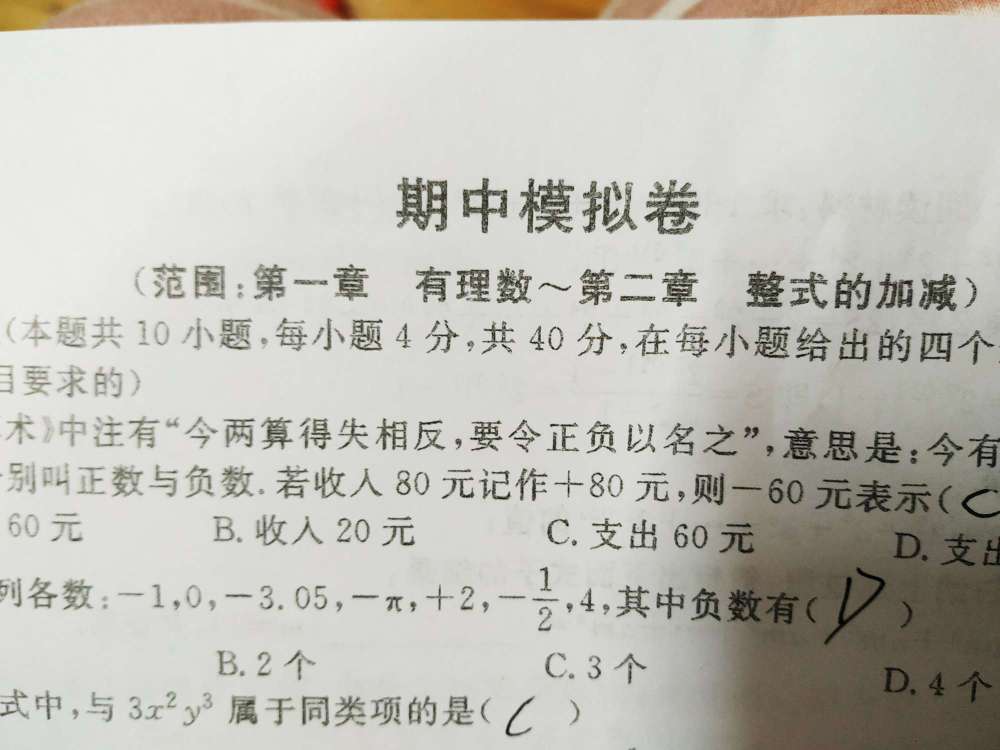 期中模拟卷
(范围:第一章 有理数～第二章 整式的加减)
(本题共 10 小题,每小题 4 分,共 40 分,在每小题给出的四个
目要求的)
术》中注有“今两算得失相反,要令正负以名之”,意思是:今有
别叫正数与负数.若收入 80 元记作+80 元,则-60 元表示( C
60 元 B. 收入 20 元 C. 支出 60 元 D. 支出
列各数:-1,0,-3.05,-π,+2,-1/2,4,其中负数有( D )
B. 2 个 C. 3 个 D. 4 个
式中,与 3x²y³ 属于同类项的是( C )